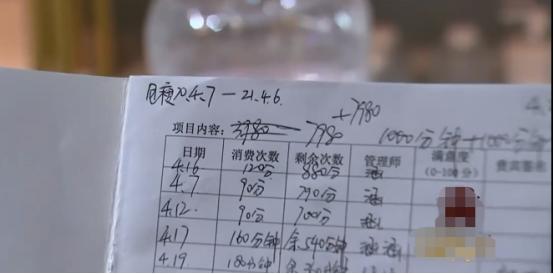 瘦20.4.7—21.4.6.
+7980
项目内容：3980 7980 1000分钟+100
日期 消费次数 剩余次数 管理师 满意度（0-100分） 贵宾签名
4.16 120分 880分
4.7 90分 790分
4.12. 90分 700分
4.17 160分钟 余540分钟
4.19 180分钟 余